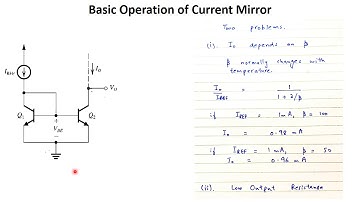 Basic Operation of Current Mirror
Two problems.
(i). Io depends on β
β normally changes with
temperature.
Io / IREF = 1 / 1 + 2/β
if IREF = 1mA, β = 100
Io = 0.98 mA
if IREF = 1 mA, β = 50
Io = 0.96 mA
(ii). Low Output Resistance
IREF
IO
VO
Q1
VBE
Q2